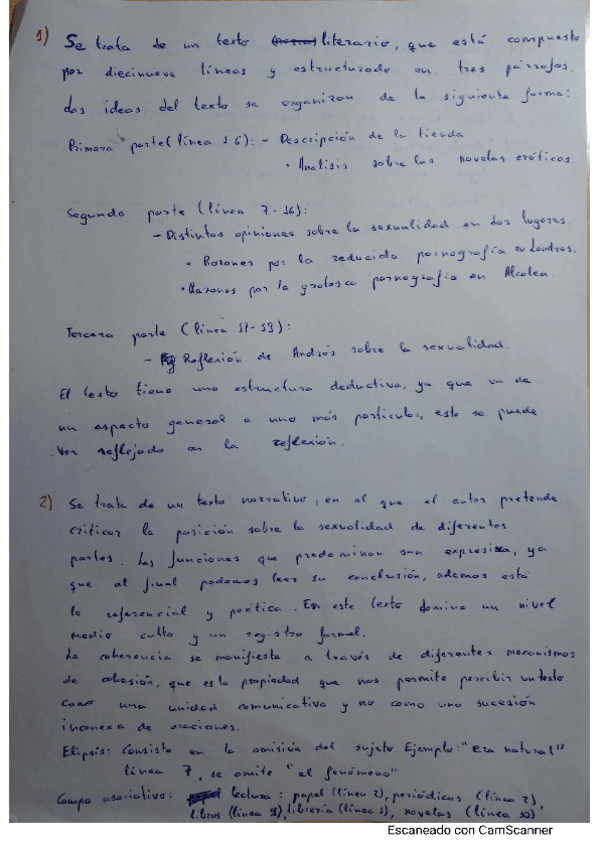 1) Se trata de un texto literario, que está compuesto
por diecinueve líneas y estructurado en tres párrafos.
dos ideas del texto se organizan de la siguiente forma:
Primera parte (línea 1 6): - Descripción de la tienda
• Analisis sobre las novelas eróticas.
Segunda parte (línea 7-16):
- Distintas opiniones sobre la sexualidad en dos lugares.
• Razones por la reducida pornografía en Londres.
• Razones por la grotesca pornografía en Alcolea.
Tercera parte (línea 17-19):
- Reflexión de Andrés sobre la sexualidad.
El texto tiene una estructura deductiva, ya que va de
un aspecto general a uno más particular, esto se puede
Ver reflejado en la reflexión.
2) Se trata de un texto narrativo, en el que el autor pretende
criticar la posición sobre la sexualidad de diferentes
partes. Las funciones que predominan son expresiva, ya
que al final podemos leer su conclusión, ademas está
la referencial y poética. En este texto domina un nivel
medio culto y un registro formal.
La coherencia se manifiesta a través de diferentes mecanismos
de cohesión, que es la propiedad que nos permite percibir un texto
como una unidad comunicativa y no como una sucesión
inconexa de oraciones.
Elipsis: Consiste en la omisión del sujeto Ejemplo: "Era natural"
línea 7, se omite "el fenómeno"
Campo asociativo: lectura: papel (línea 2), periódicos (línea 2),
libros (línea 9), librería (línea 1), novelas (línea 10)
Escaneado con CamScanner